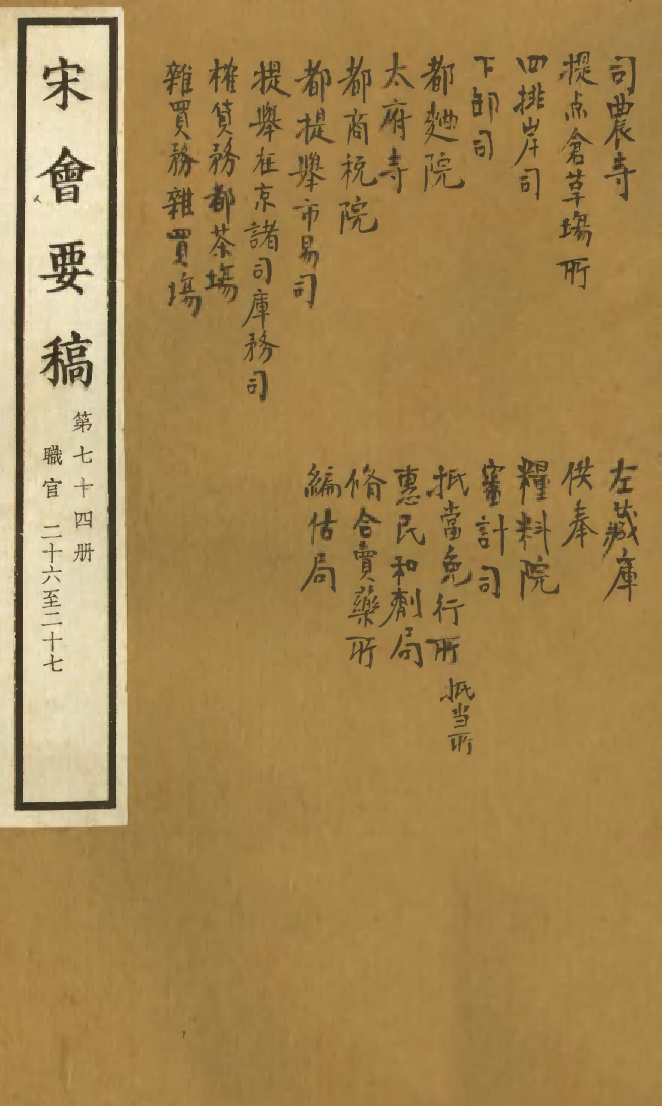 司農寺
提点倉草場所
四排岸司
下卸司
都麯院
太府寺
都商税院
都提舉市易司
提舉在京諸司庫務司
榷貨務都茶場
雜買務雜買場
左藏庫
供奉
糧料院
審計司
抵當免行所 抵当所
惠民和劑局
脩合賣藥所
編估局
宋會要稿
第七十四册
職官 二十六至二十七